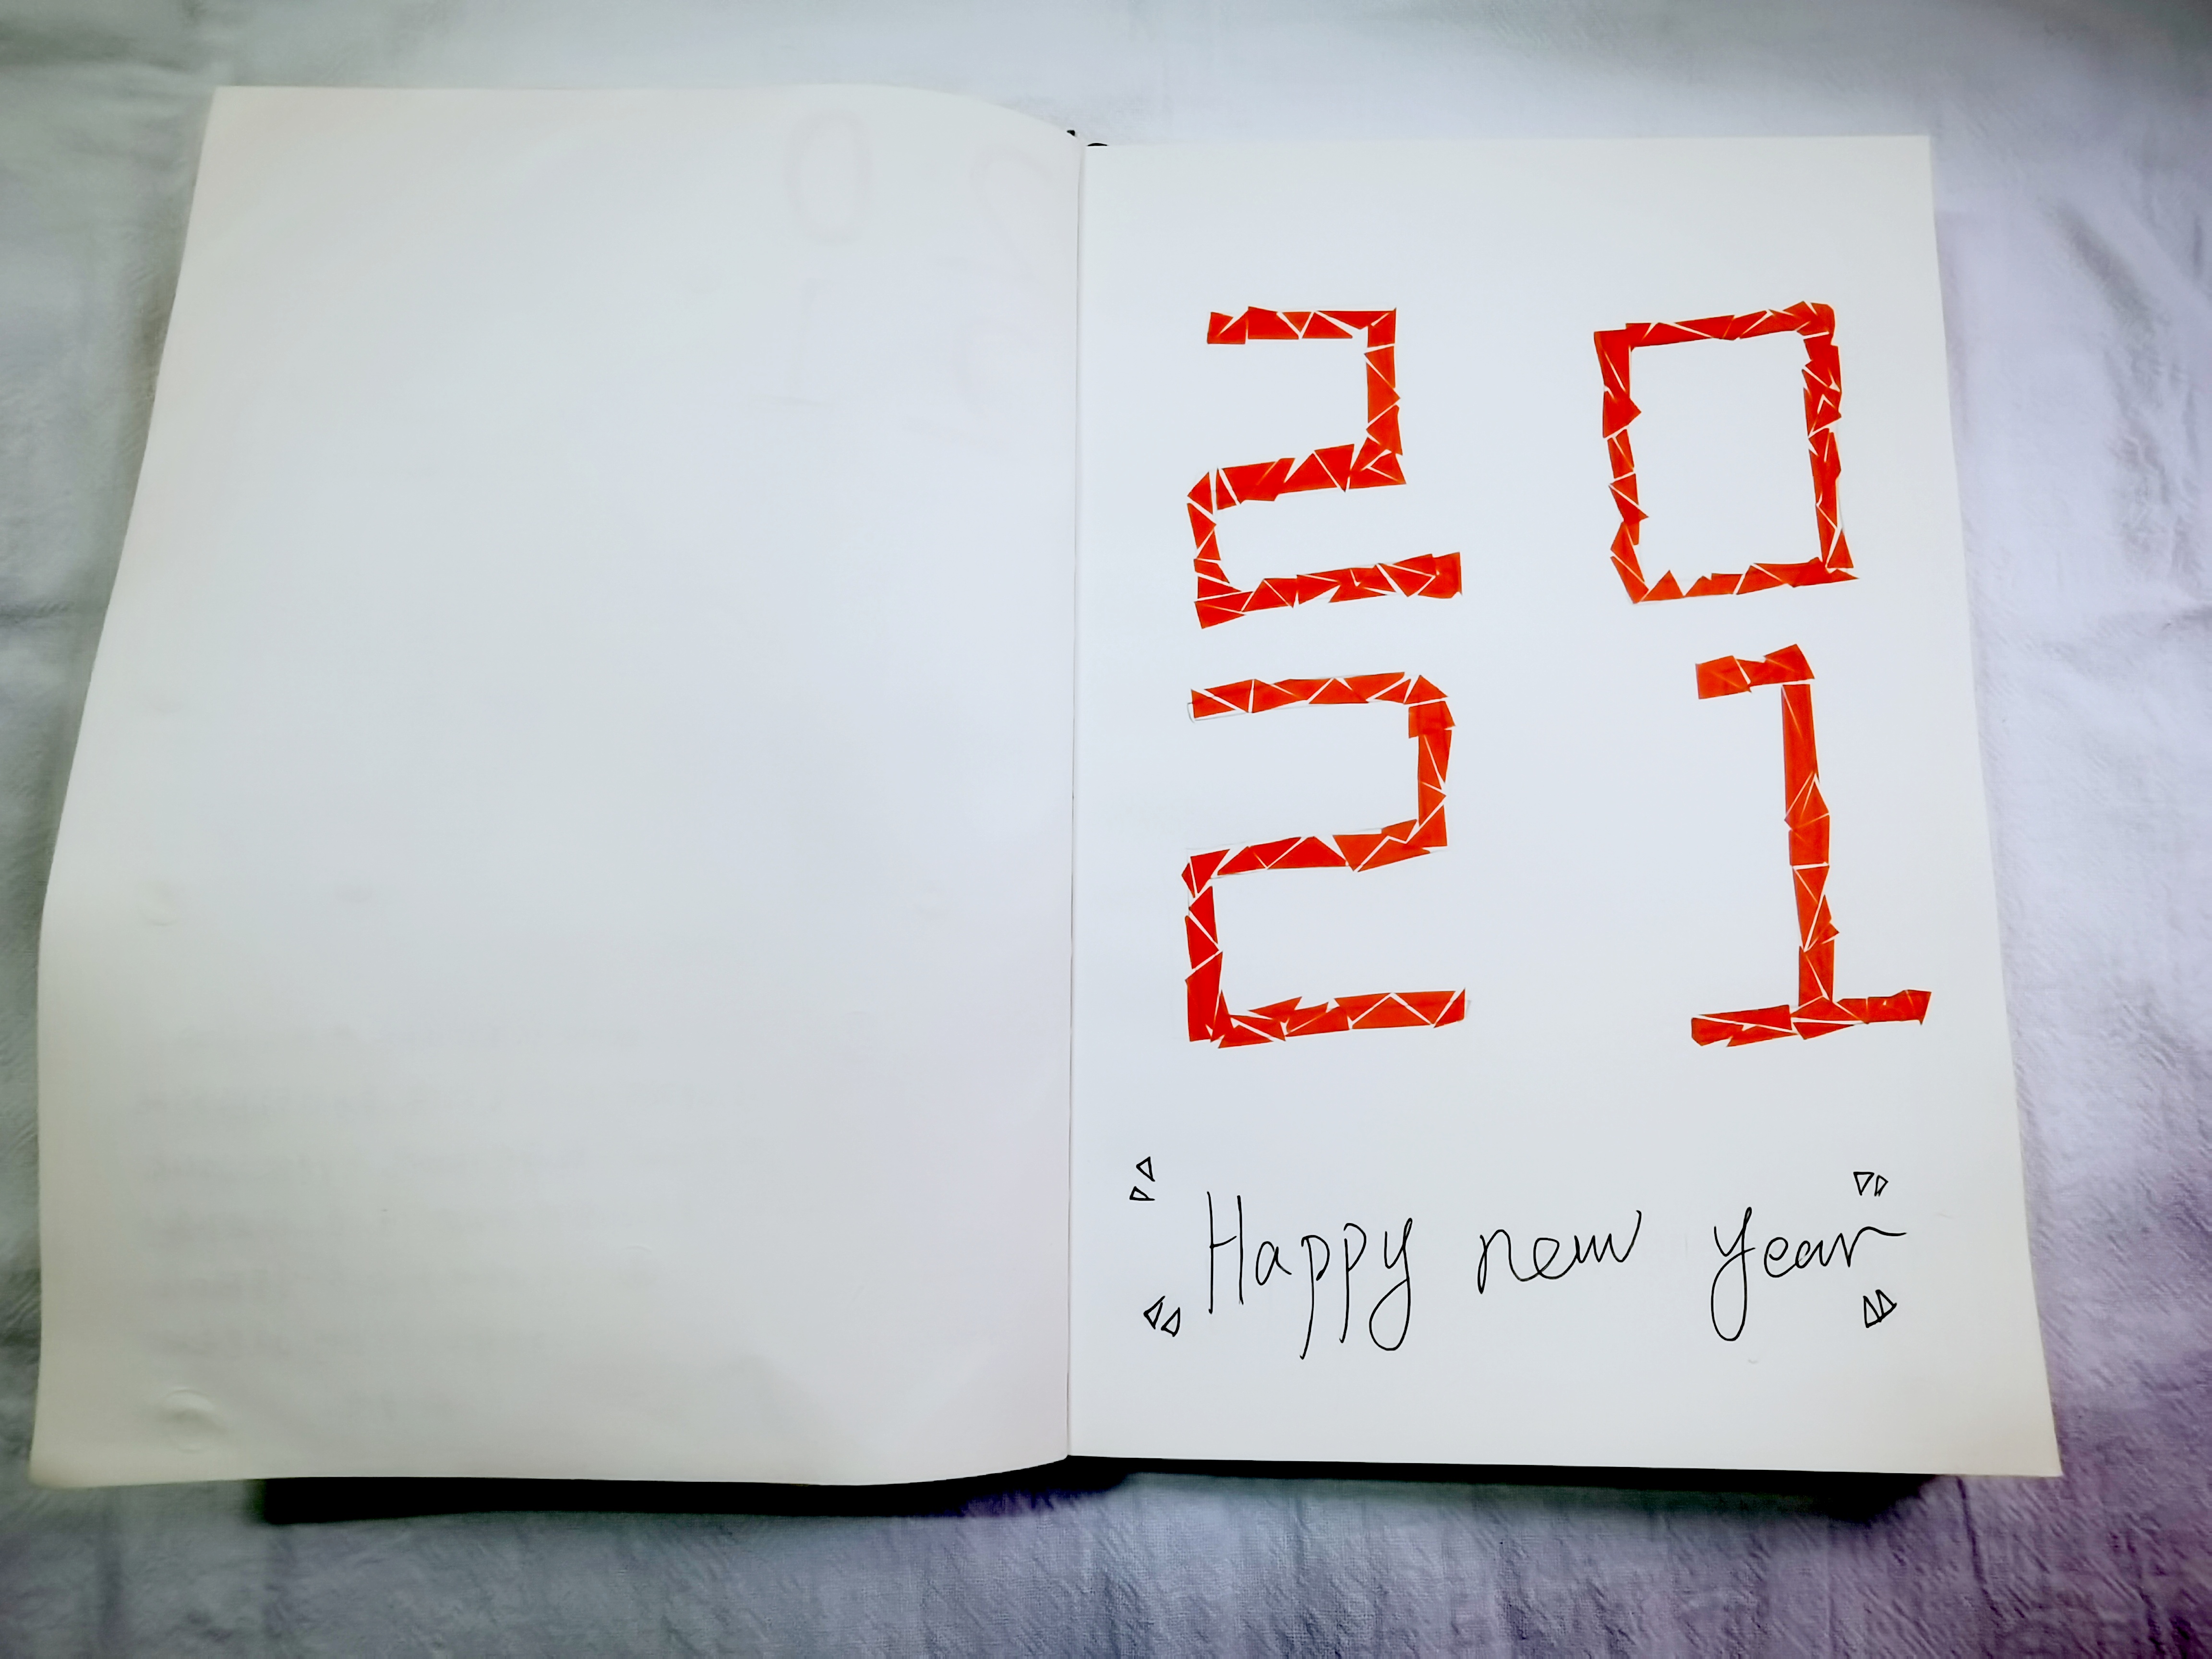 20
21
Happy new year